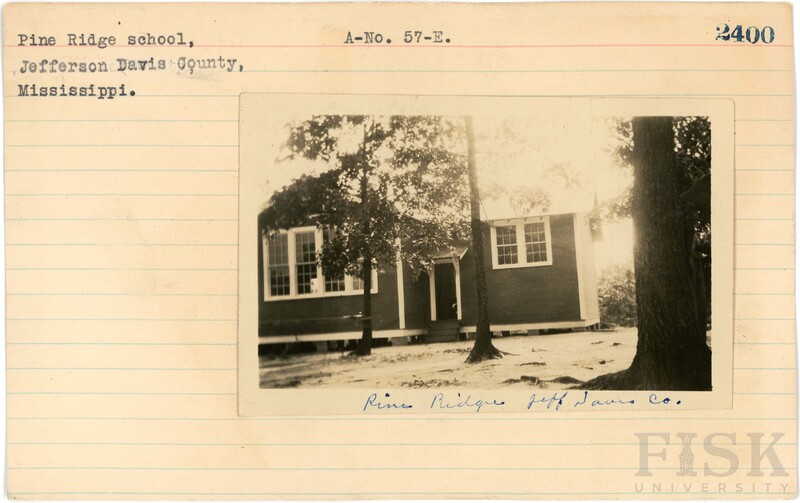 Pine Ridge school, A-No. 57-E. 2400
Jefferson Davis County,
Mississippi.
Pine Ridge Jeff Davis Co.
FISK
UNIVERSITY